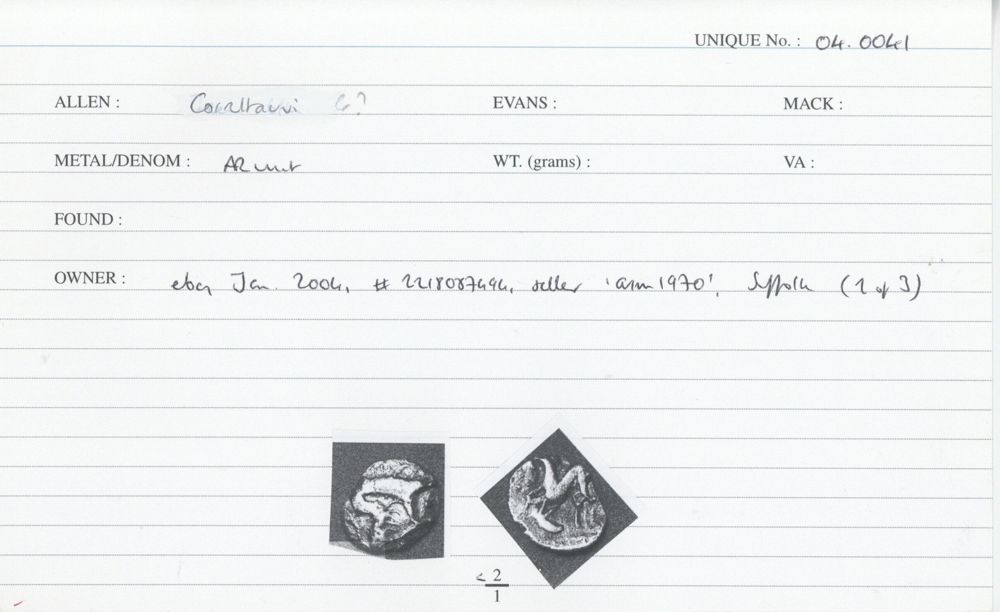 UNIQUE No. : 04.0041
ALLEN : G? EVANS : MACK :
METAL/DENOM : AR unit WT. (grams) : VA :
FOUND :
OWNER : ebay Jan. 2004, # 2218087494, seller 'arm1970', Suffolk (1 of 3)
< 2
1